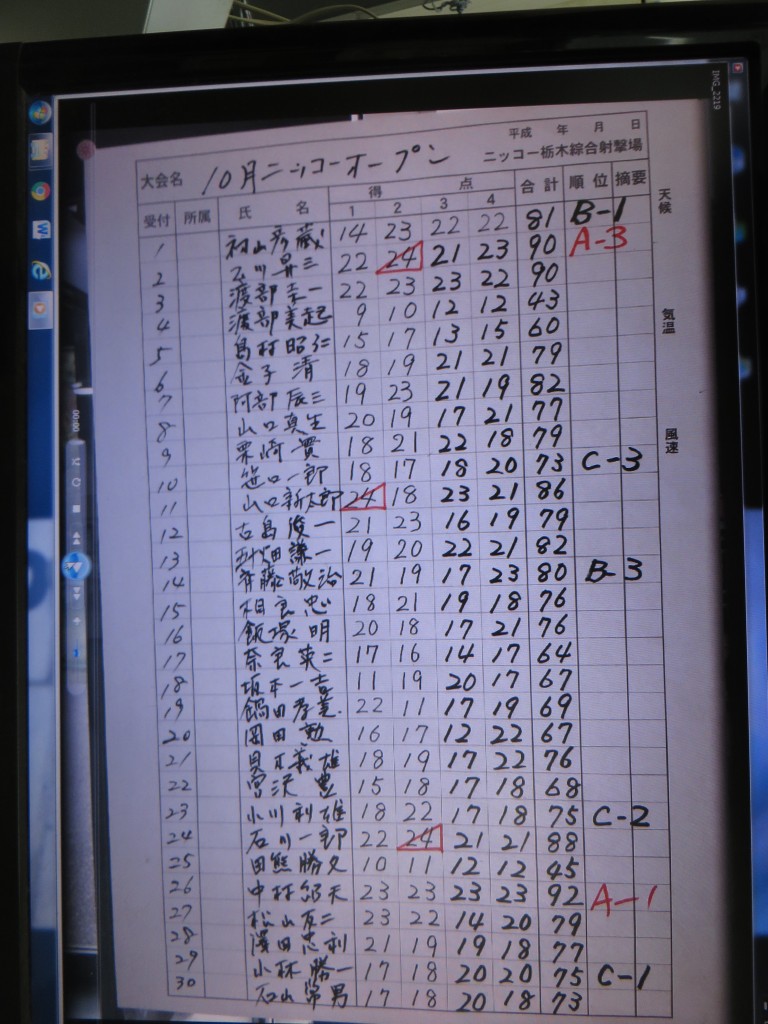 IMG_2219
平成 年 月 日
大会名 10月ニッコーオープン ニッコー栃木綜合射撃場
受付 所属 氏 名 得 点 合計 順位 摘要
1 2 3 4
天候
気温
風速
1 山彦蔵 14 23 22 22 81 B-1
2 川昇三 22 24 21 23 90 A-3
3 渡部幸一 22 23 23 22 90
4 渡部美起 9 10 12 12 43
5 島村昭仁 15 17 13 15 60
6 金子清 18 19 21 21 79
7 阿部辰三 19 23 21 19 82
8 山口真生 20 19 17 21 77
9 栗崎實 18 21 22 18 79
10 笹口一郎 18 17 18 20 73 C-3
11 山口新太郎 24 18 23 21 86
12 古島俊一 21 23 16 19 79
13 畑謙一 19 20 22 21 82
14 斉藤敬治 21 19 17 23 80 B-3
15 相良忠 18 21 19 18 76
16 飯塚明 20 18 17 21 76
17 奈良英二 17 16 14 17 64
18 坂本一喜 11 19 20 17 67
19 鍋田孝 22 11 17 19 69
20 岡田勲 16 17 12 22 67
21 義雄 18 19 17 22 76
22 宮沢豊 15 18 17 18 68
23 小川利雄 18 22 17 18 75 C-2
24 石川一郎 22 24 21 21 88
25 田熊勝久 10 11 12 12 45
26 中村 23 23 23 23 92 A-1
27 松山友二 23 22 14 20 79
28 澤田忠利 21 19 19 18 77
29 小林勝一 17 18 20 20 75 C-1
30 石山常男 17 18 20 18 73
00:00